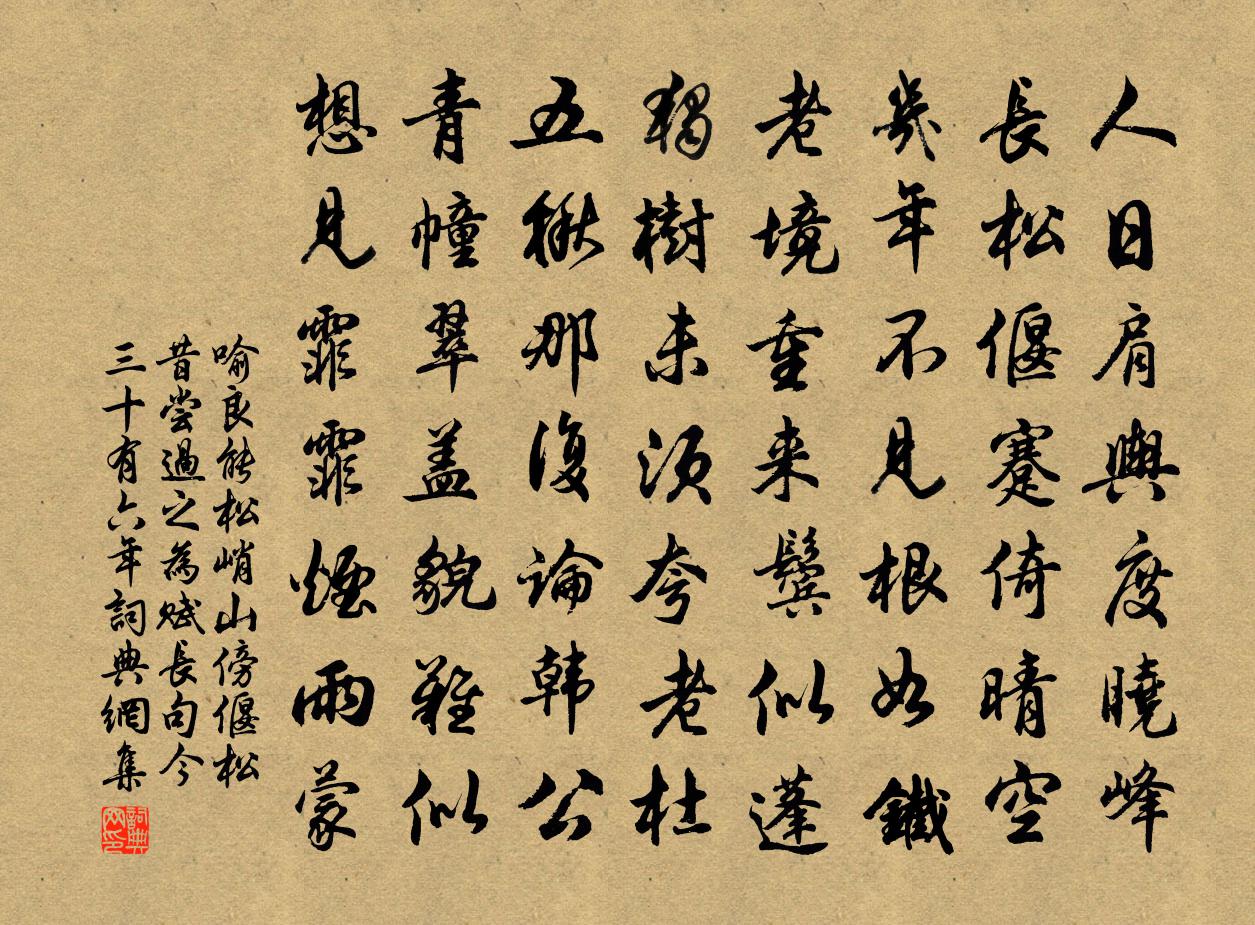 人日肩輿度曉峰
長松偃蹇倚晴空
幾年不見根如鐵
老境重來鬢似蓬
獨樹未須夸老杜
五楸那復論韓公
青幢翠蓋貌難似
想見霏霏煙雨蒙
喻良能松峭山傍偃松
昔嘗過之為賦長句今
三十有六年詞典網集
詞典網印